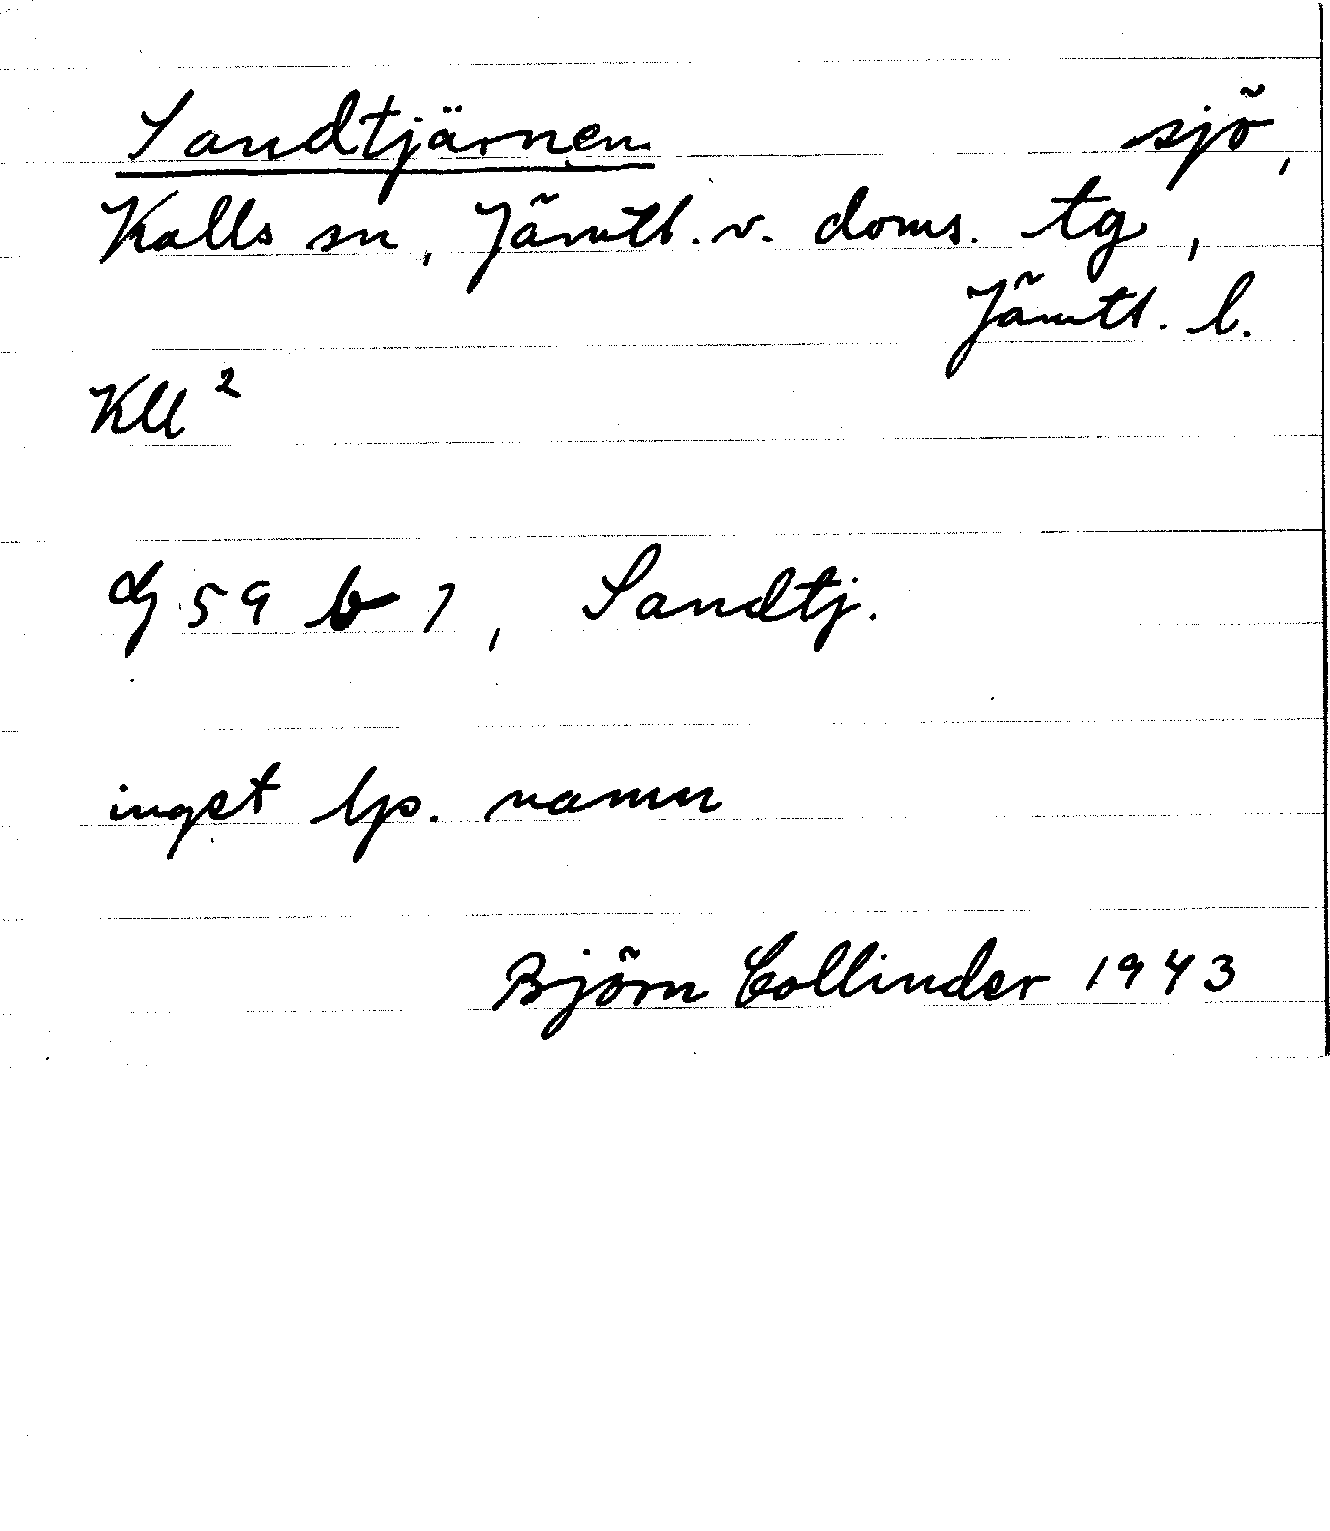 Sandtjärnen sjö,
Kalls sn, Jämtl. v. doms. tg,
Jämtl. l.
Kll 2
59 b 1, Sandtj.
inget lp. namn
Björn Collinder 1943